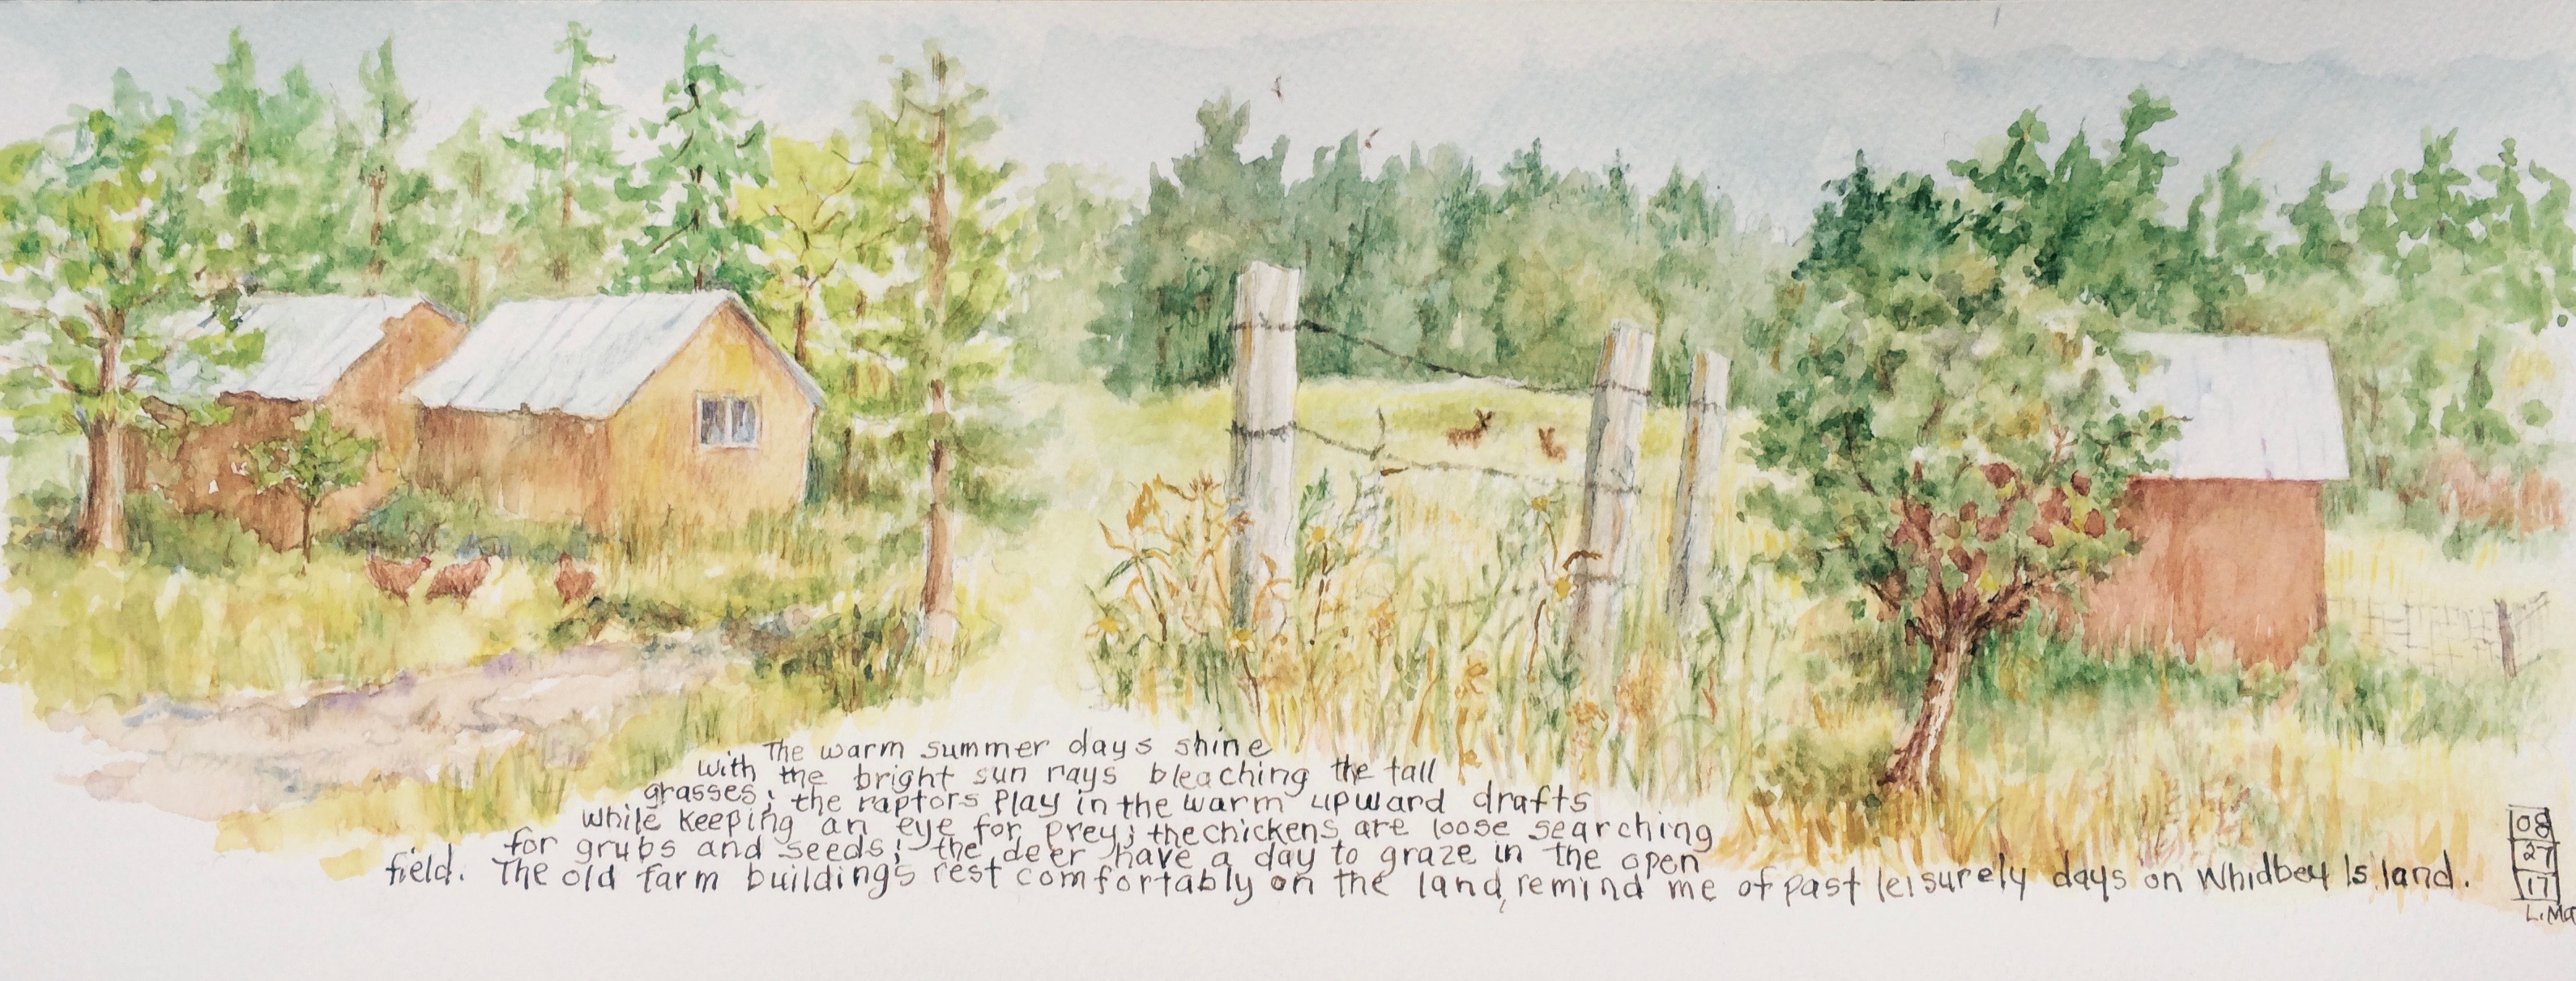 The warm summer days shine
with the bright sun rays bleaching the tall
grasses; the raptors play in the warm upward drafts
while keeping an eye for prey; the chickens are loose searching
for grubs and seeds; the deer have a day to graze in the open
field. The old farm buildings rest comfortably on the land, remind me of past leisurely days on Whidbey Island.
08
27
17
L. Ma